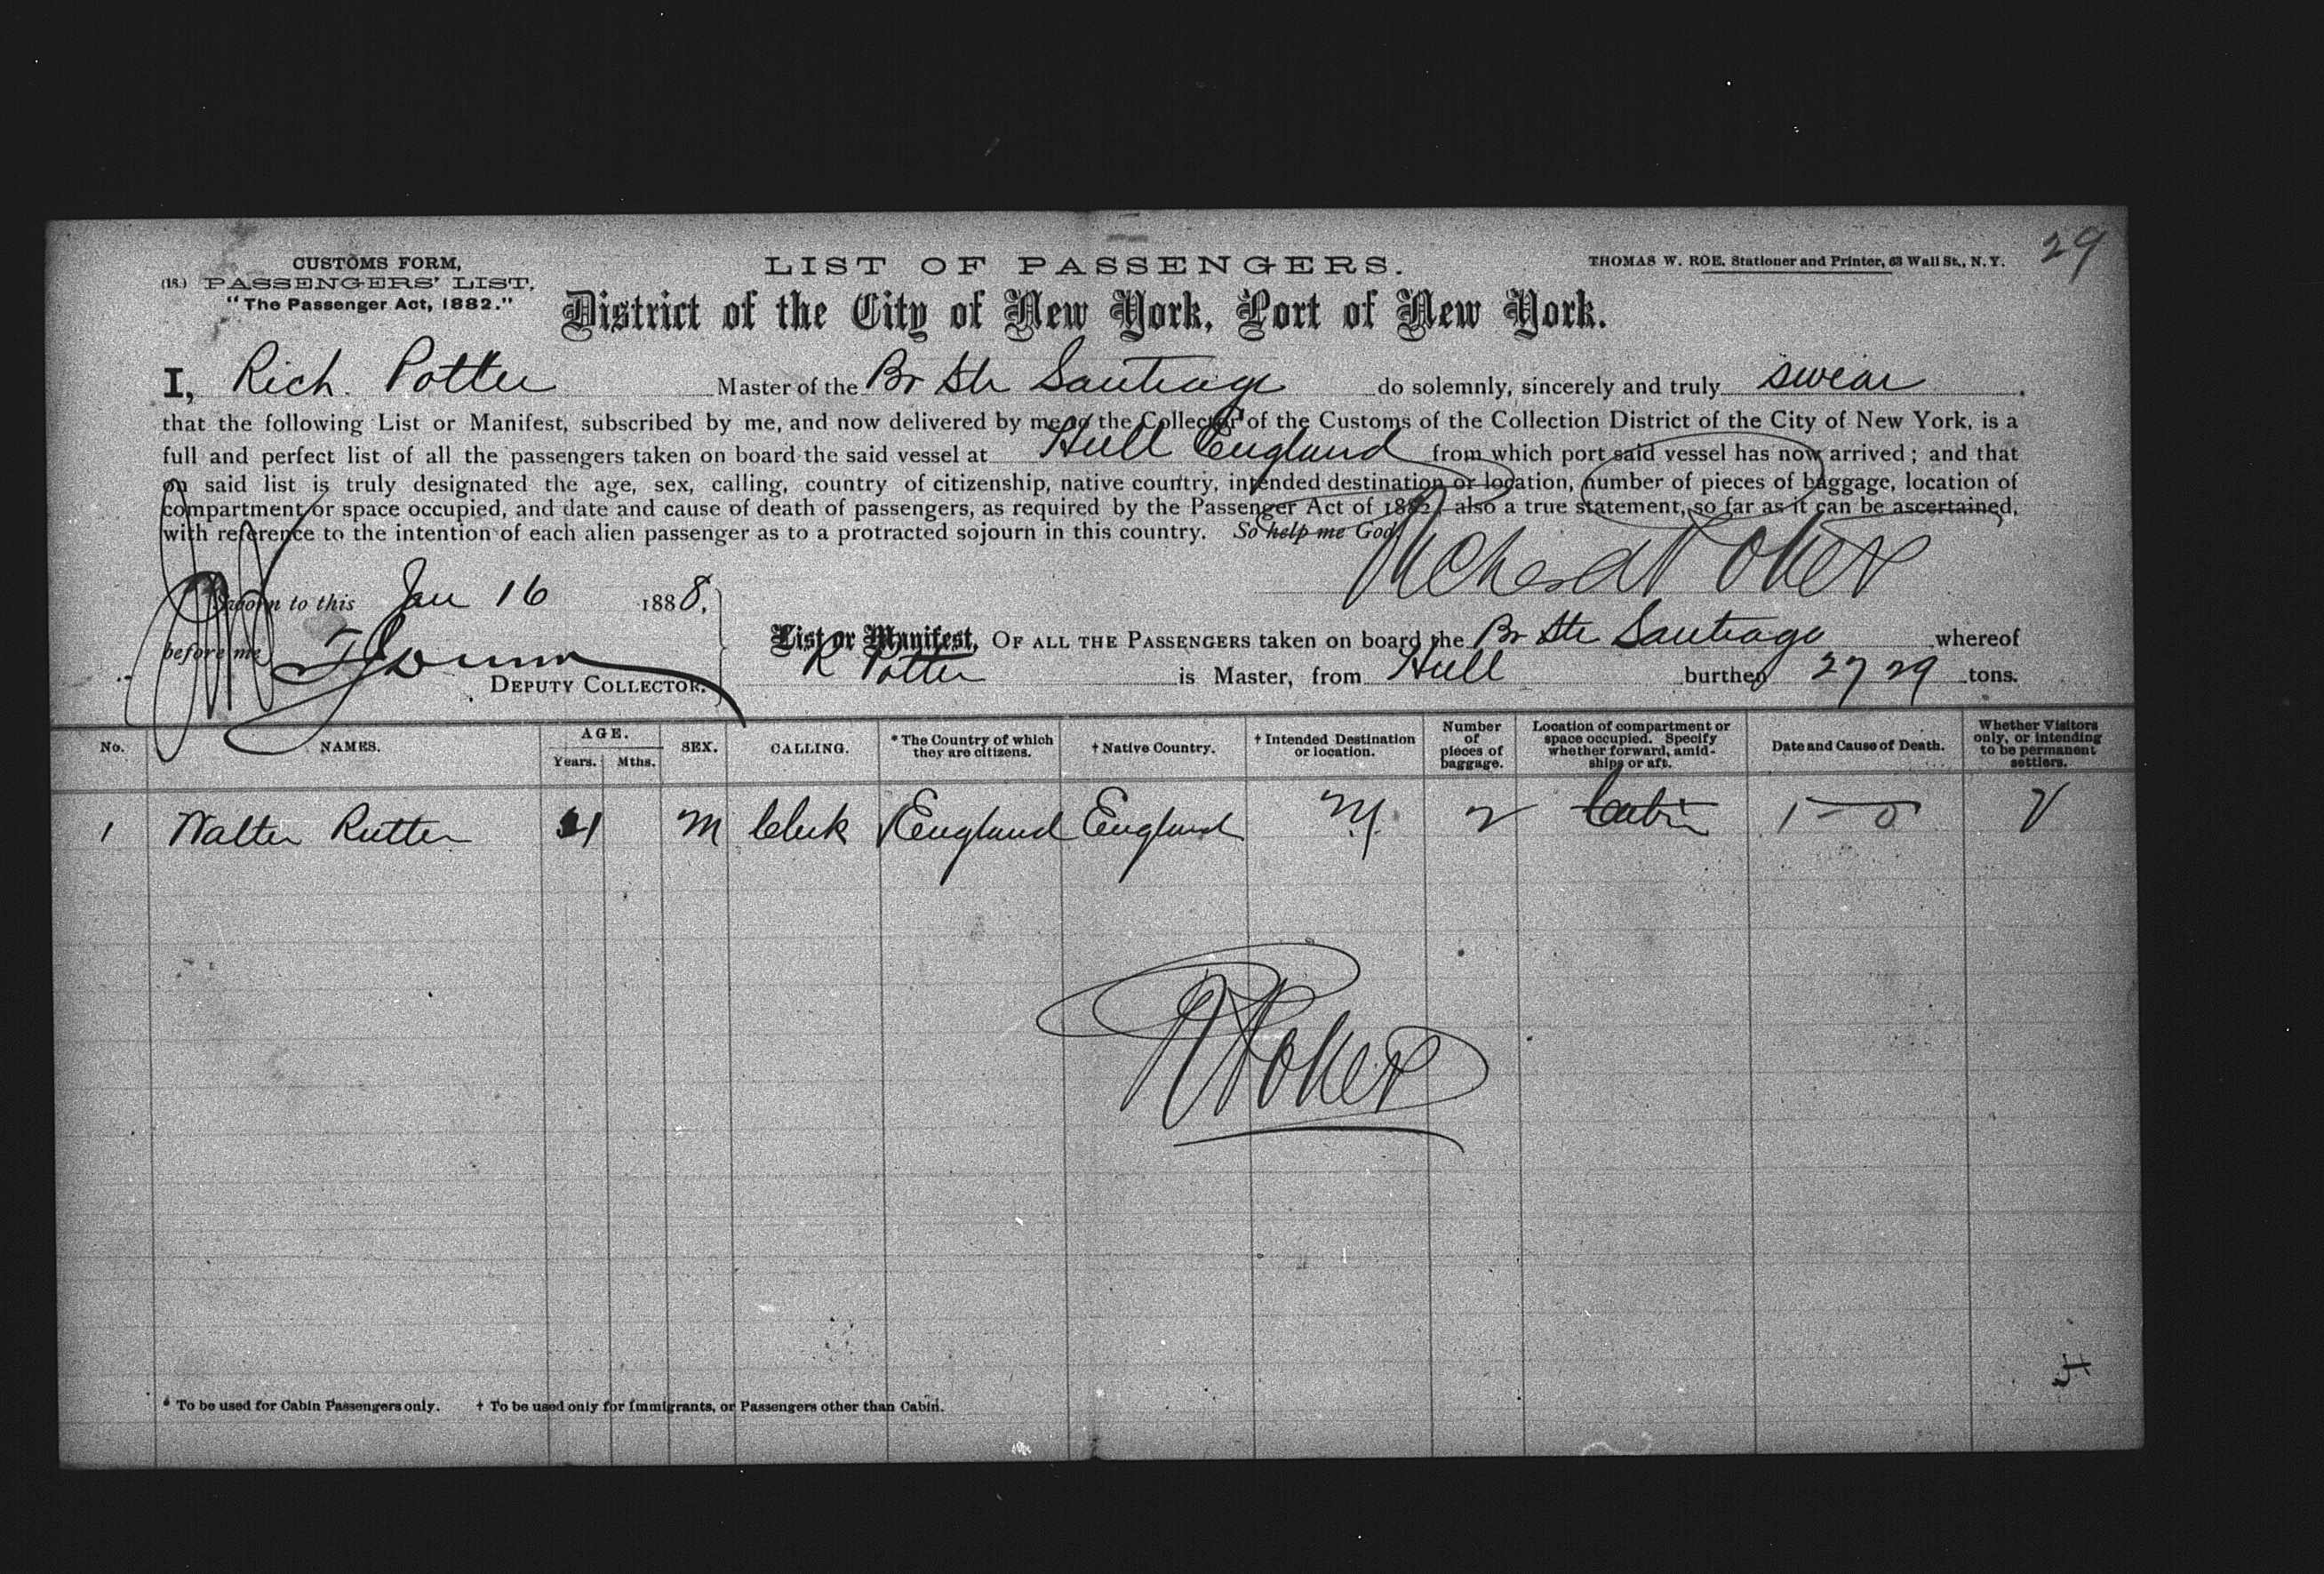 29
CUSTOMS FORM,
(18.) PASSENGERS' LIST.
"The Passenger Act, 1882."
LIST OF PASSENGERS.
THOMAS W. ROE. Stationer and Printer, 63 Wall St., N.Y.
District of the City of New York, Port of New York.
I, Rich. Potter Master of the Br Str Santiago do solemnly, sincerely and truly swear
that the following List or Manifest, subscribed by me, and now delivered by me to the Collector of the Customs of the Collection District of the City of New York, is a
full and perfect list of all the passengers taken on board the said vessel at Hull England from which port said vessel has now arrived; and that
on said list is truly designated the age, sex, calling, country of citizenship, native country, intended destination or location, number of pieces of baggage, location of
compartment or space occupied, and date and cause of death of passengers, as required by the Passenger Act of 1882, also a true statement, so far as it can be ascertained,
with reference to the intention of each alien passenger as to a protracted sojourn in this country. So help me God.
Richard Potter
Sworn to this Jan 16 1888.
before me
DEPUTY COLLECTOR.
List or Manifest, OF ALL THE PASSENGERS taken on board the Br Str Santiago whereof
R Potter is Master, from Hull burthen 2729 tons.
No. NAMES. AGE. Years. Mths. SEX. CALLING. * The Country of which they are citizens. † Native Country. † Intended Destination or location. Number of pieces of baggage. Location of compartment or space occupied. Specify whether forward, amidships or aft. Date and Cause of Death. Whether Visitors only, or intending to be permanent settlers.
1 Walter Rutter 21 M Clerk England England N.Y. 2 Cabin V
R Potter
* To be used for Cabin Passengers only. † To be used only for Immigrants, or Passengers other than Cabin.